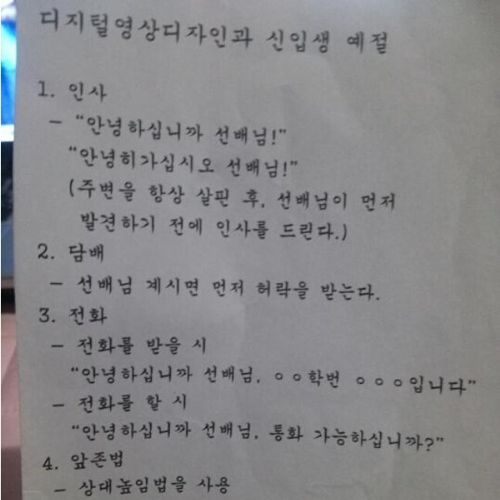 디지털영상디자인과 신입생 예절
1. 인사
- "안녕하십니까 선배님!"
"안녕히가십시오 선배님!"
(주변을 항상 살핀 후, 선배님이 먼저
발견하기 전에 인사를 드린다.)
2. 담배
- 선배님 계시면 먼저 허락을 받는다.
3. 전화
- 전화를 받을 시
"안녕하십니까 선배님, ㅇㅇ학번 ㅇㅇㅇ입니다"
- 전화를 할 시
"안녕하십니까 선배님, 통화 가능하십니까?"
4. 앞존법
- 상대높임법을 사용